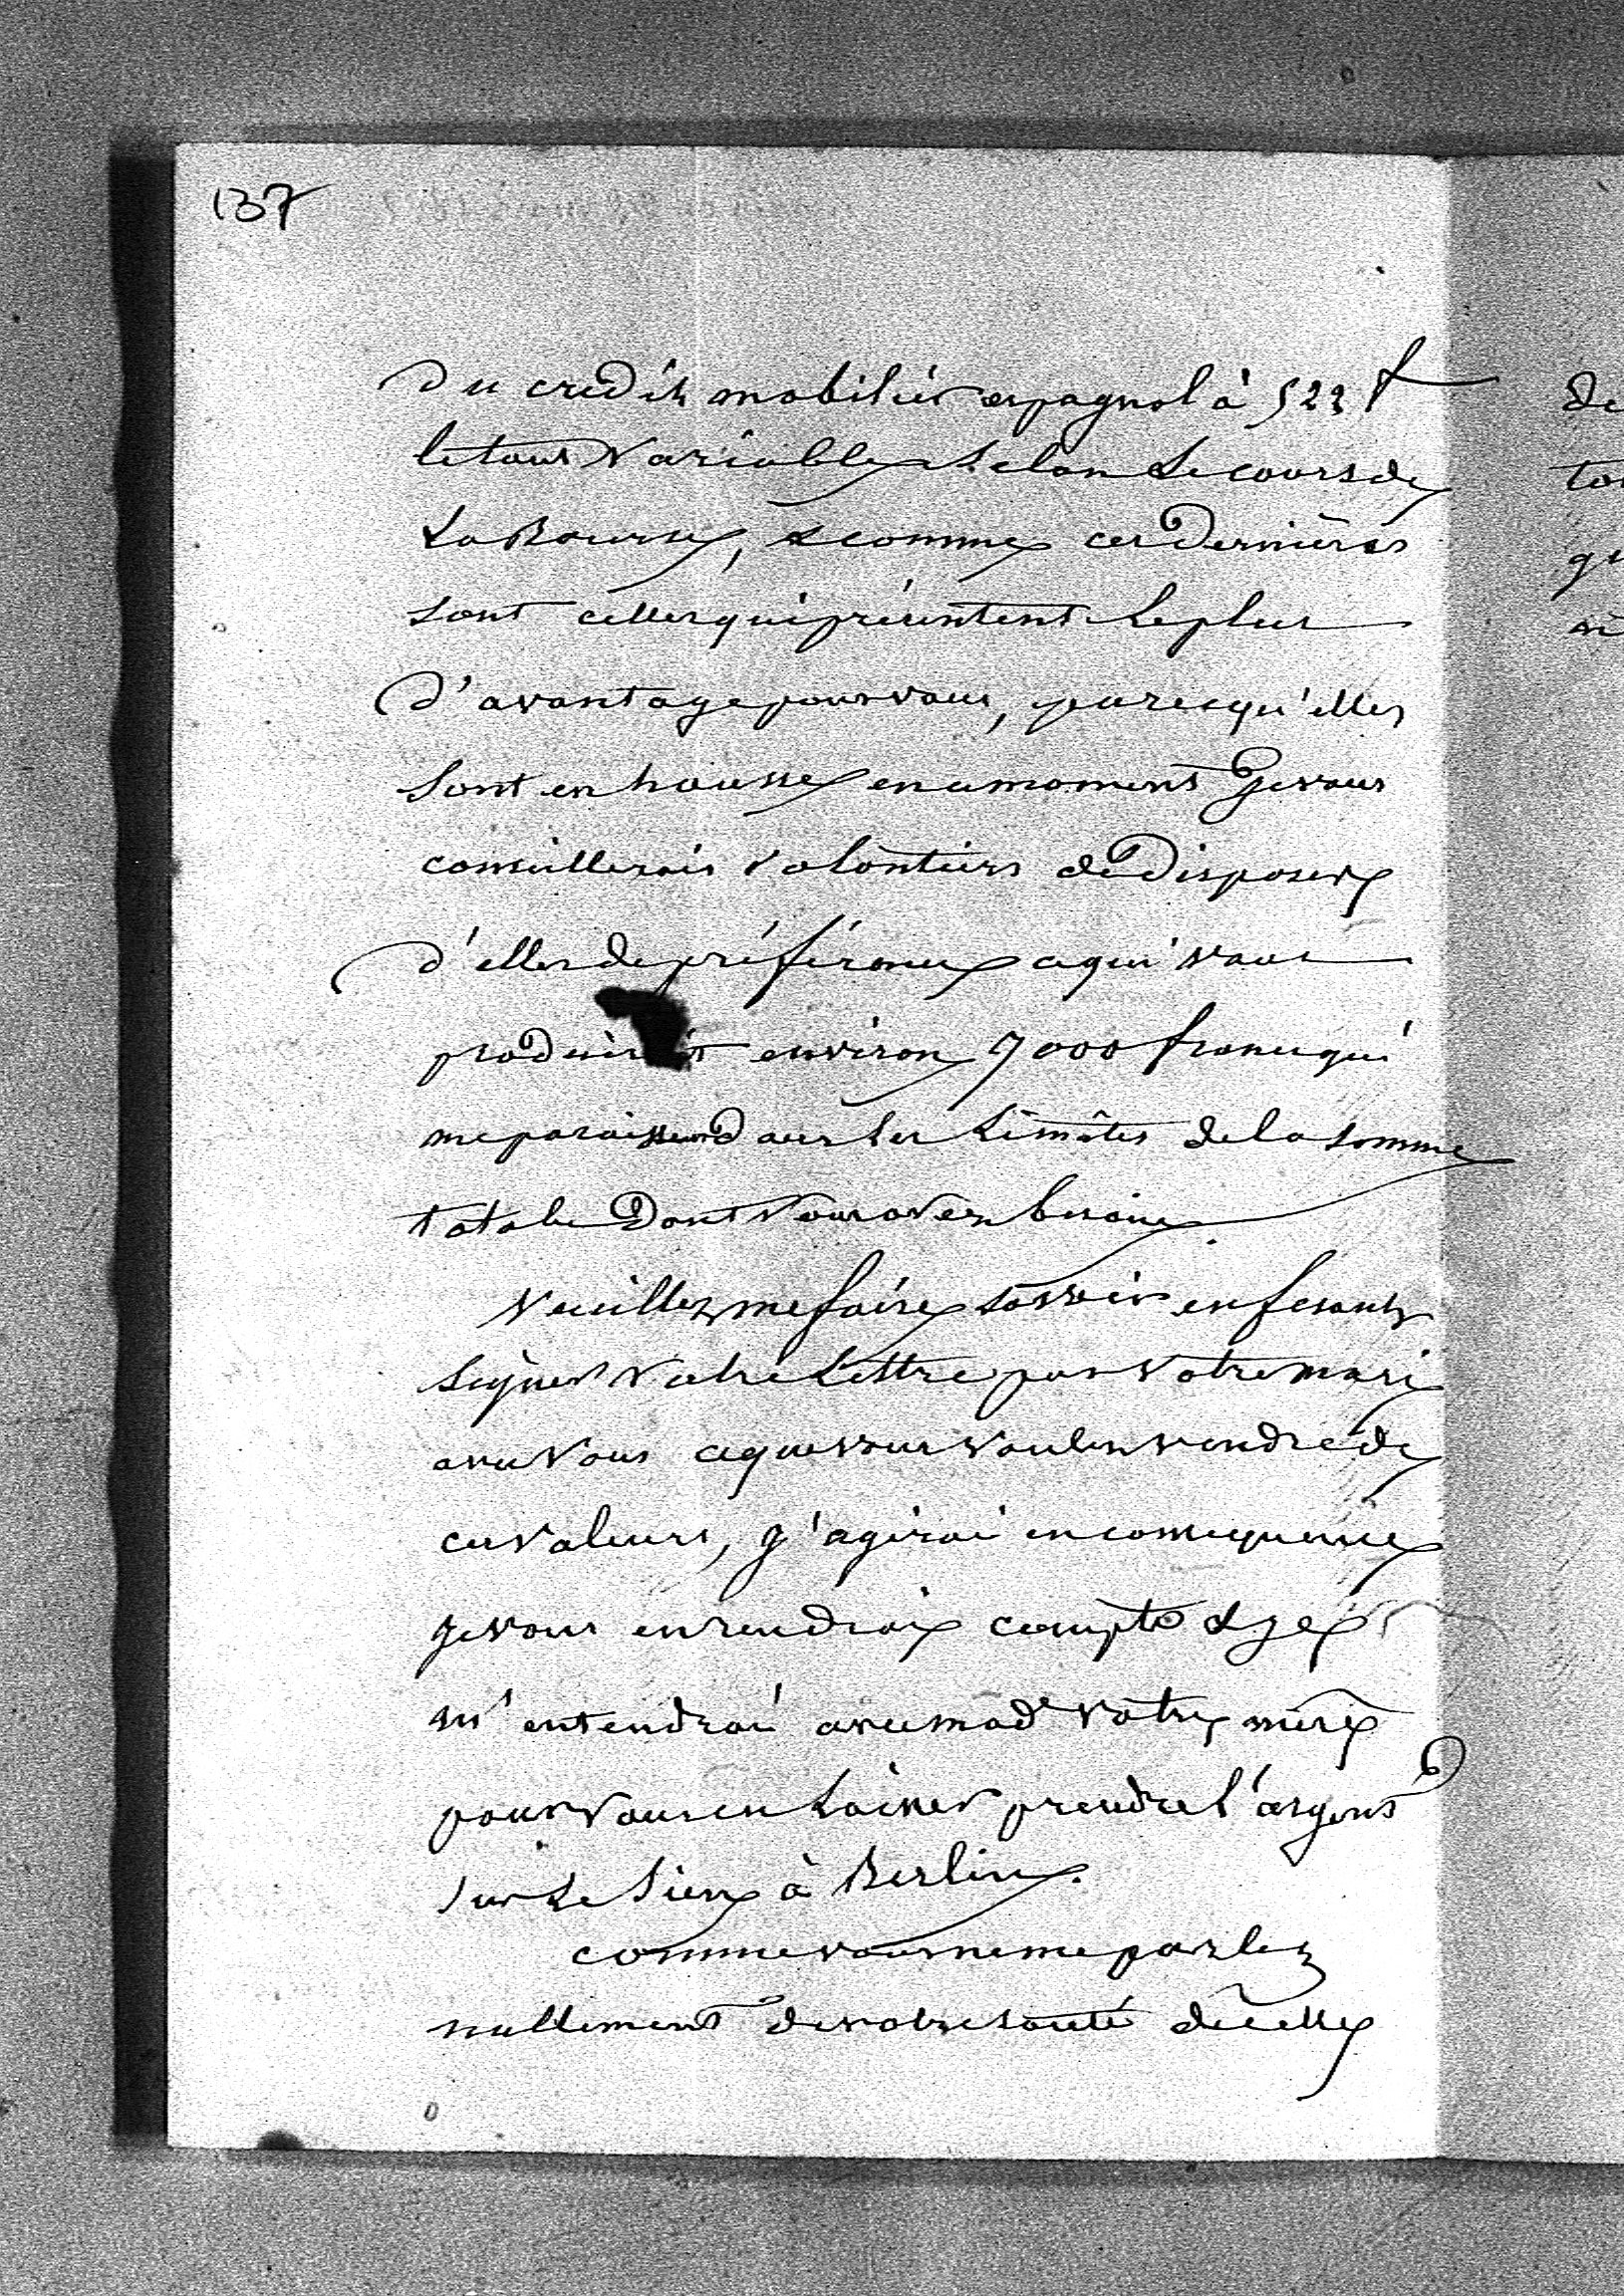 137
du credit mobilier espagnol à 523 f
le tout variable selon le cours de
La Bourse, & comme ces dernières
sont celles qui présentent le plus
d'avantage pour vous, puresqu'elles
sont en hausse en ce moment Je vous
conseillerais volontiers de disposer
d'elles de préférence ce qui vous
produirait environ 7000 francs qui
me paraissend dans les Limites de la somme
totale dont vous avez besoin.
Veuillez me faire savoir en fesant
signer votre Lettre par votre mari
avec vous ce que vous voulez vendre de
ces valeurs, j'agirai en consequence
je vous en rendrai compte & je
m'entendrai avec mad.e votre mère
pour vous en laisser prendre l'argent
sur le sien à Berlin.
comme vous ne me parlez
nullement de votre santé de celle
de